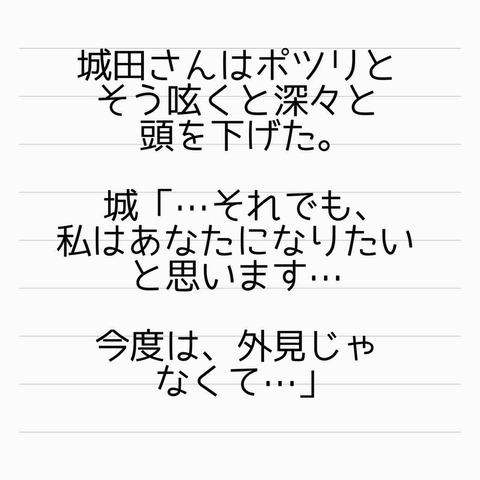 城田さんはポツリと
そう呟くと深々と
頭を下げた。
城「…それでも、
私はあなたになりたい
と思います…
今度は、外見じゃ
なくて…」